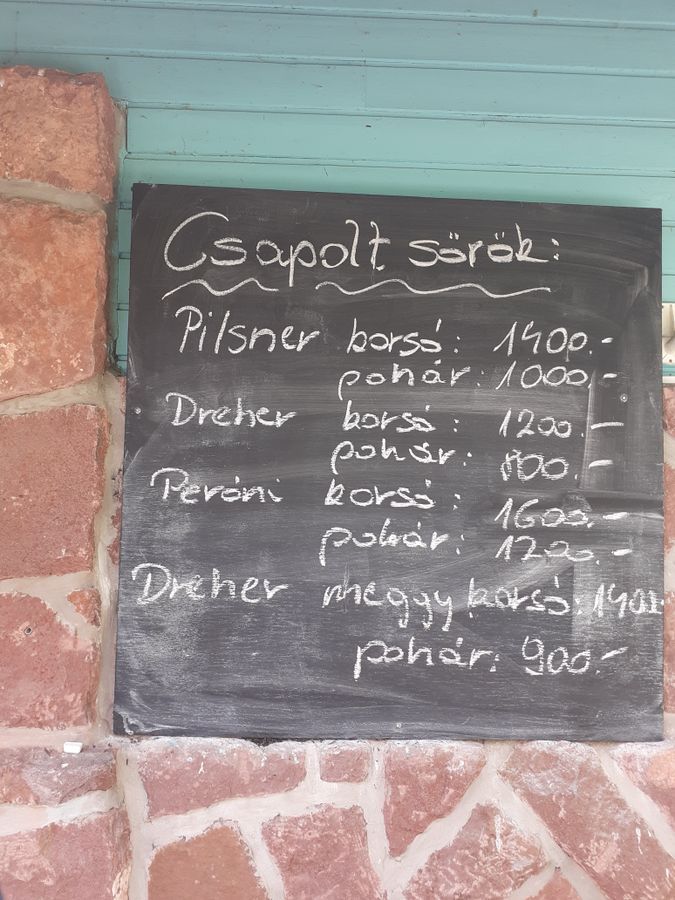 Csapolt sörök:
Pilsner borsó: 1400.-
pohár: 1000.-
Dreher borsó: 1200.-
pohár: 800.-
Peróni korsó: 1600.-
pohár: 1200.-
Dreher meggy korsó: 1400.-
pohár: 900.-